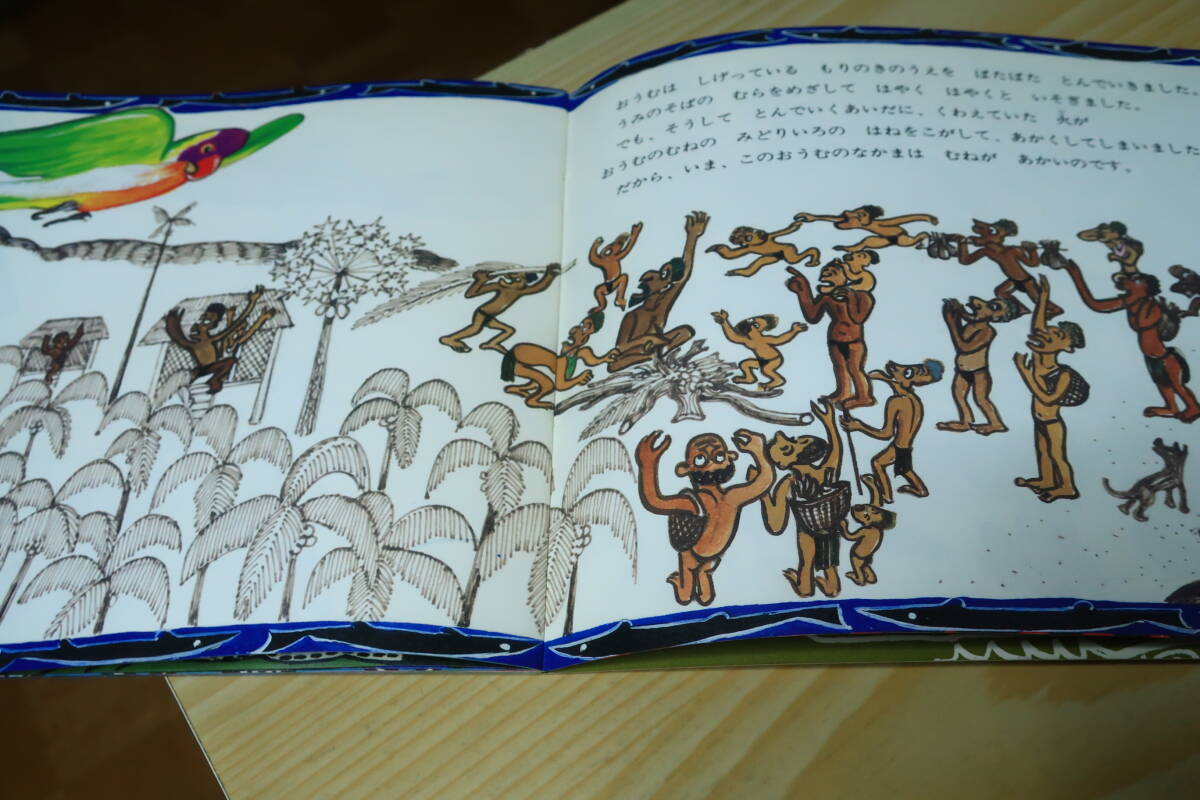 おうむは しげっている もりのきのうえを ばたばた とんでいきました。
うみのそばの むらをめざして はやく はやくと いそぎました。
でも、そうして とんでいくあいだに、くわえていた 火が
おうむのむねの みどりいろの はねをこがして、あかくしてしまいました
だから、いま、このおうむのなかまは むねが あかいのです。